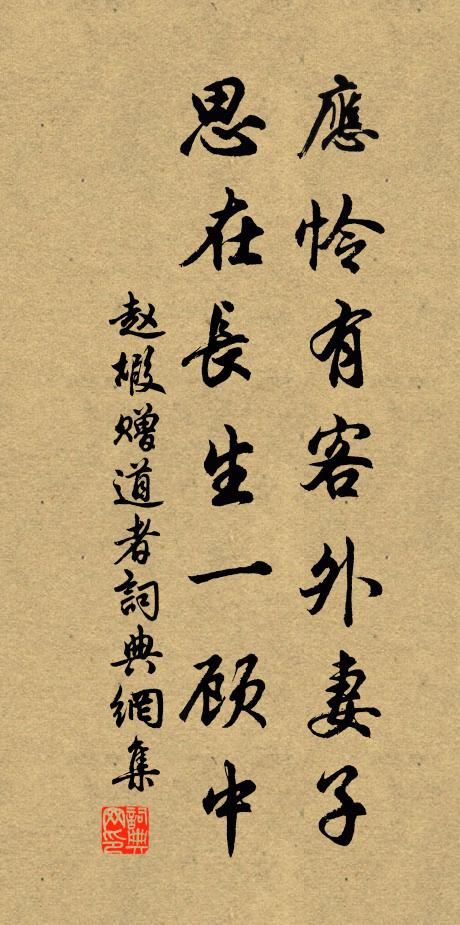 應怜有客外妻子
思在長生一顾中
赵嘏赠道者詞典網集
詞典
网印